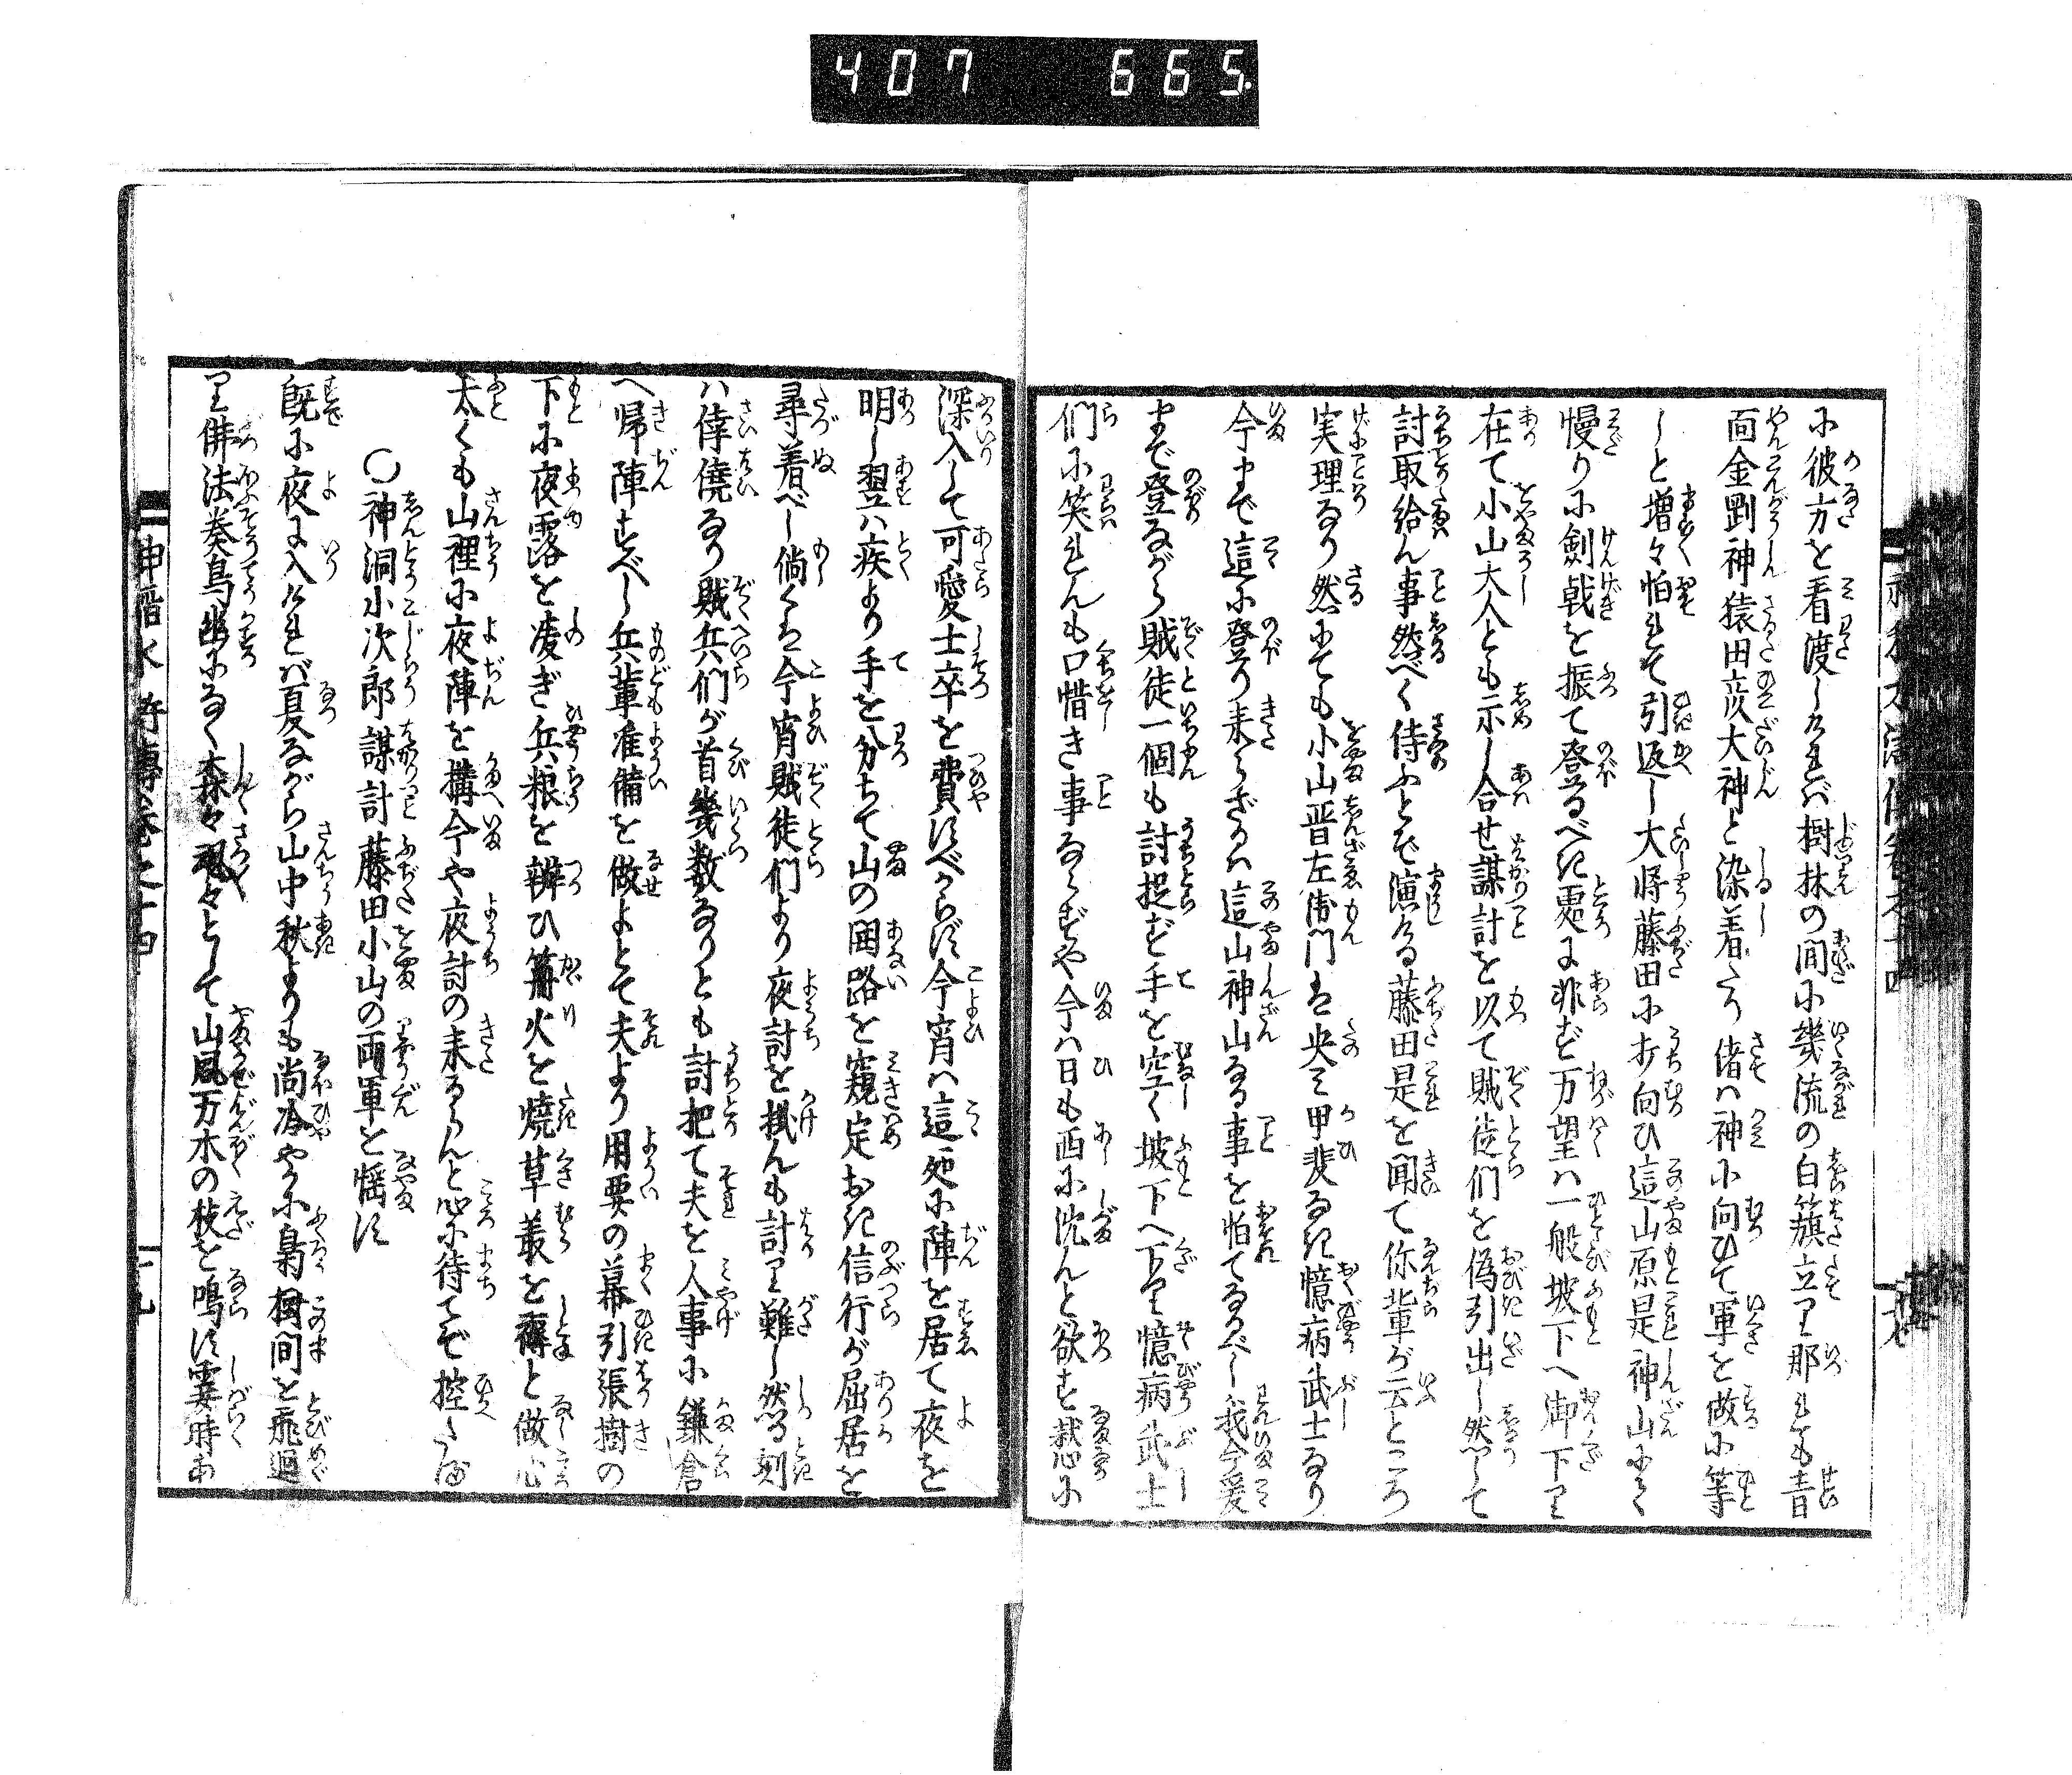 407 665
に彼方を看渡しければ樹林の間に幾流の白籏立り那れも青
面金剛神猿田彦大神と染着たり偖は神に向ひて軍を做に等
しと増々怕れて引返し大将藤田に打向ひ這山原是神山にて
慢りに劍戟を振て登るべき處に非ず万望は一般坡下へ御下り
在て小山大人とも示し合せ謀計を以て賊徒们を偽引出し然して
討取給ん事然べく侍ふとぞ演ける藤田是を聞て你輩が云ところ
実理なり然にても小山晋左衛門は央み甲斐なき憶病武士なり
今まで這に登り来らざるは這山神山なる事を怕てなるべし我今爰
まで登ながら賊徒一個も討捉ず手を空く坡下へ下り憶病武士
们に笑れんも口惜き事ならずや今は日も西に沈んと欲す愁に
深入して可愛士卒を費すべからず今宵は這処に陣を居て夜を
明し翌は疾より手を分ちて山の囲路を窺定おき信行が屈居を
尋着べし倘くは今宵賊徒们より夜討を掛んも討り難し然る刻
は倖僥なり賊兵们が首幾数なりとも討把て夫を人事に鎌倉
へ帰陣すべし兵輩准備を做よとて夫より用要の幕引張樹の
下に夜露を凌ぎ兵粮を辨ひ篝火を焼草叢を褥と做心
太くも山裡に夜陣を構今や夜討の来るらんと心に待てぞ控たる
○神洞小次郎謀計藤田小山の両軍を悩す
既に夜に入ければ夏ながら山中秋よりも尚冷やかに梟樹間を飛廻
り佛法奏鳥幽になく森々颯々として山風万木の枝を鳴す霎時あ